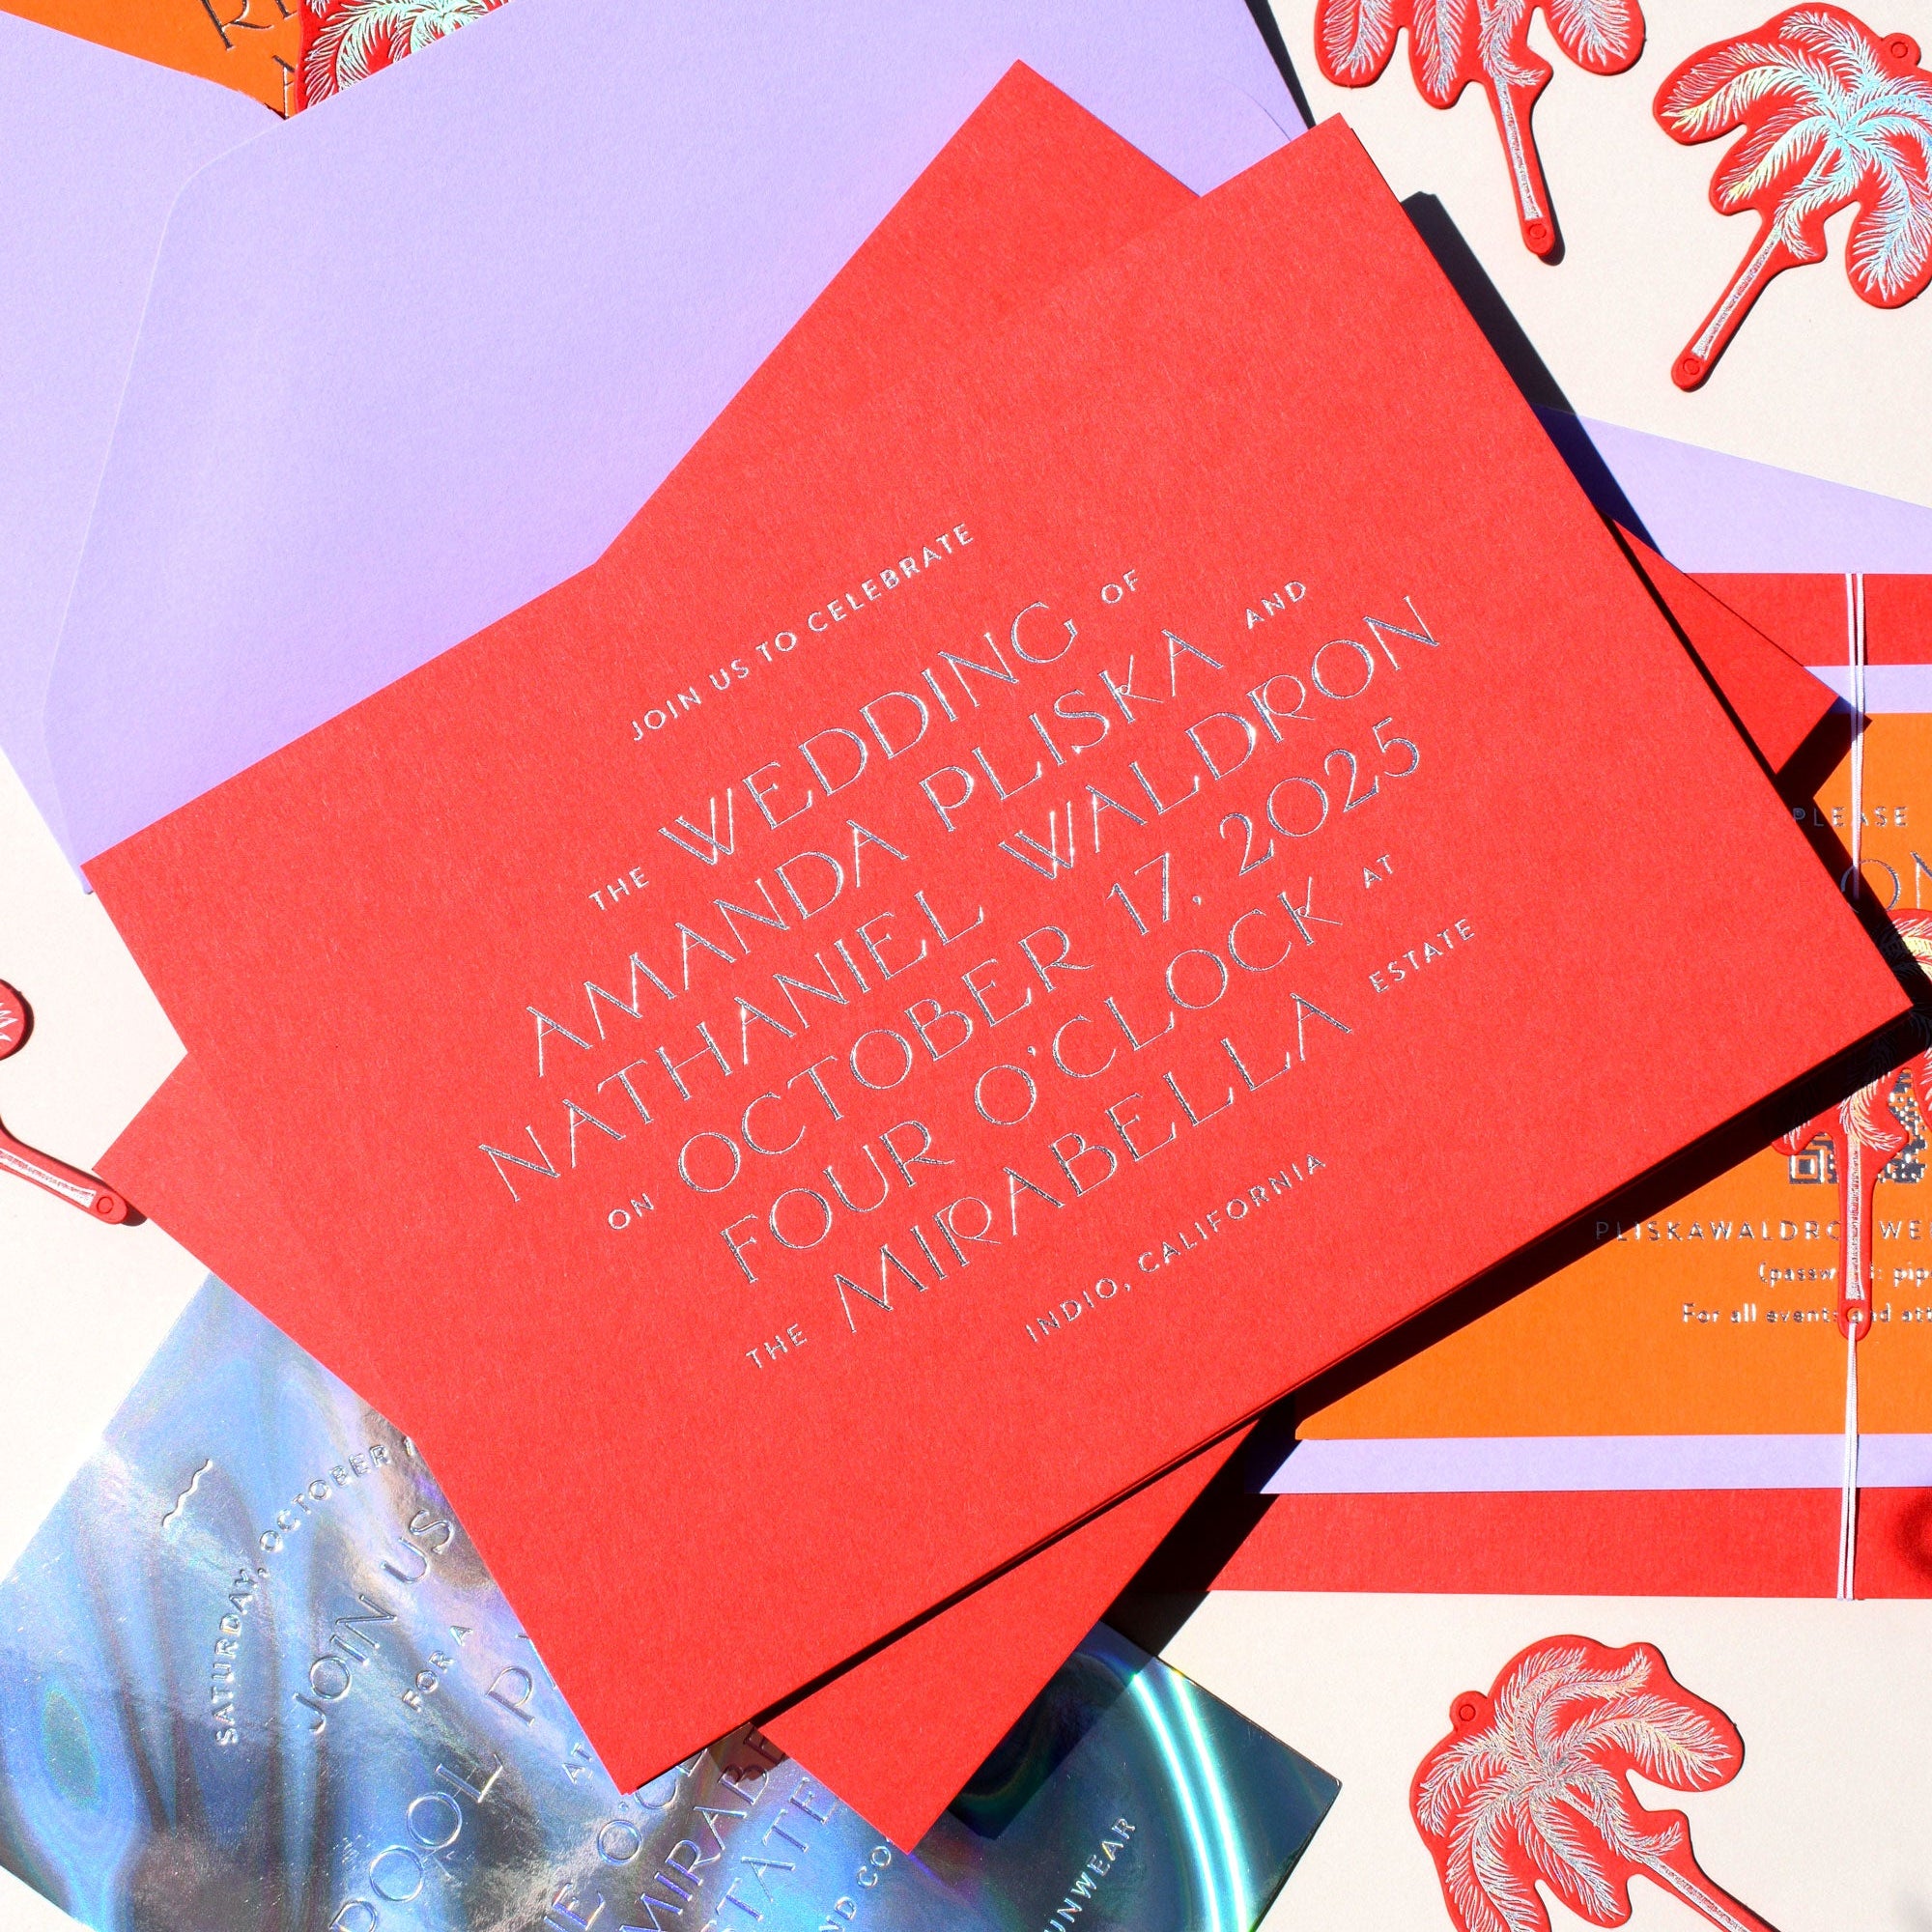 JOIN US TO CELEBRATE
THE WEDDING OF
AMANDA PLISKA AND
NATHANIEL WALDRON
ON OCTOBER 17, 2025
FOUR O'CLOCK AT
THE MIRABELLA ESTATE
INDIO, CALIFORNIA
PLEASE
For all events and
SATURDAY, OCTOBER
JOIN US
FOR A
POOL
O'CL
MIRABE
ESTATE
AND